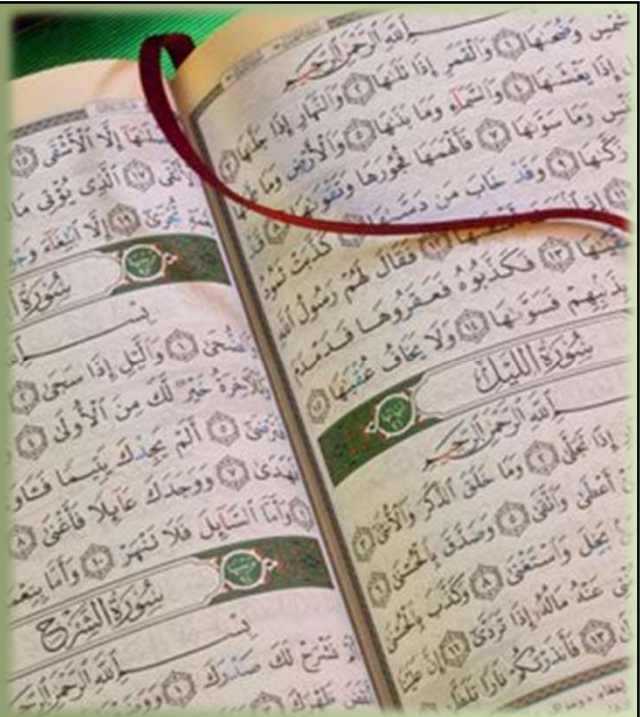 ٱللَّهِ ٱلرَّحْمَٰنِ ٱلرَّحِيمِ
وَضُحَىٰهَا ١ وَٱلْقَمَرِ إِذَا تَلَىٰهَا ٢ وَٱلنَّهَارِ إِذَا جَلَّىٰهَا ٣
إِذَا يَغْشَىٰهَا ٤ وَٱلسَّمَآءِ وَمَا بَنَىٰهَا ٥ وَٱلْأَرْضِ وَمَا
وَمَا سَوَّىٰهَا ٧ فَأَلْهَمَهَا فُجُورَهَا وَتَقْوَىٰهَا ٨ قَدْ
زَكَّىٰهَا ٩ وَقَدْ خَابَ مَن دَسَّىٰهَا ١٠ كَذَّبَتْ ثَمُودُ
١٢ فَقَالَ لَهُمْ رَسُولُ ٱللَّهِ
١٣ فَكَذَّبُوهُ فَعَقَرُوهَا فَدَمْدَمَ
بِذَنۢبِهِمْ فَسَوَّىٰهَا ١٤ وَلَا يَخَافُ عُقْبَٰهَا ١٥
سُورَةُ اللَّيْلِ
ٱللَّهِ ٱلرَّحْمَٰنِ ٱلرَّحِيمِ
إِذَا تَجَلَّىٰ ٢ وَمَا خَلَقَ ٱلذَّكَرَ وَٱلْأُنثَىٰٓ ٣
أَعْطَىٰ وَٱتَّقَىٰ ٥ وَصَدَّقَ بِٱلْحُسْنَىٰ ٦
بَخِلَ وَٱسْتَغْنَىٰ ٨ وَكَذَّبَ بِٱلْحُسْنَىٰ
عَنْهُ مَالُهُۥٓ إِذَا تَرَدَّىٰٓ ١١ إِنَّ عَلَيْنَا
١٣ فَأَنذَرْتُكُمْ نَارًا تَلَظَّىٰ
إِلَّا ٱلْأَشْقَى ١٥
١٧ ٱلَّذِى يُؤْتِى
تُجْزَىٰٓ ١٩ إِلَّا ٱبْتِغَآءَ
سُورَةُ
بِسْمِ
وَٱلضُّحَىٰ ١ وَٱلَّيْلِ إِذَا سَجَىٰ ٢
وَلَلْءَاخِرَةُ خَيْرٌ لَّكَ مِنَ ٱلْأُولَىٰ ٤
٥ أَلَمْ يَجِدْكَ يَتِيمًا فَـَٔاوَىٰ
٧ وَوَجَدَكَ عَآئِلًا فَأَغْنَىٰ ٨
وَأَمَّا ٱلسَّآئِلَ فَلَا تَنْهَرْ ١٠ وَأَمَّا بِنِعْمَةِ
سُورَةُ الشَّرْحِ
بِسْمِ ٱللَّهِ ٱلرَّحْمَٰنِ ٱلرَّحِيمِ
نَشْرَحْ لَكَ صَدْرَكَ ١
أَنقَضَ ظَهْرَكَ